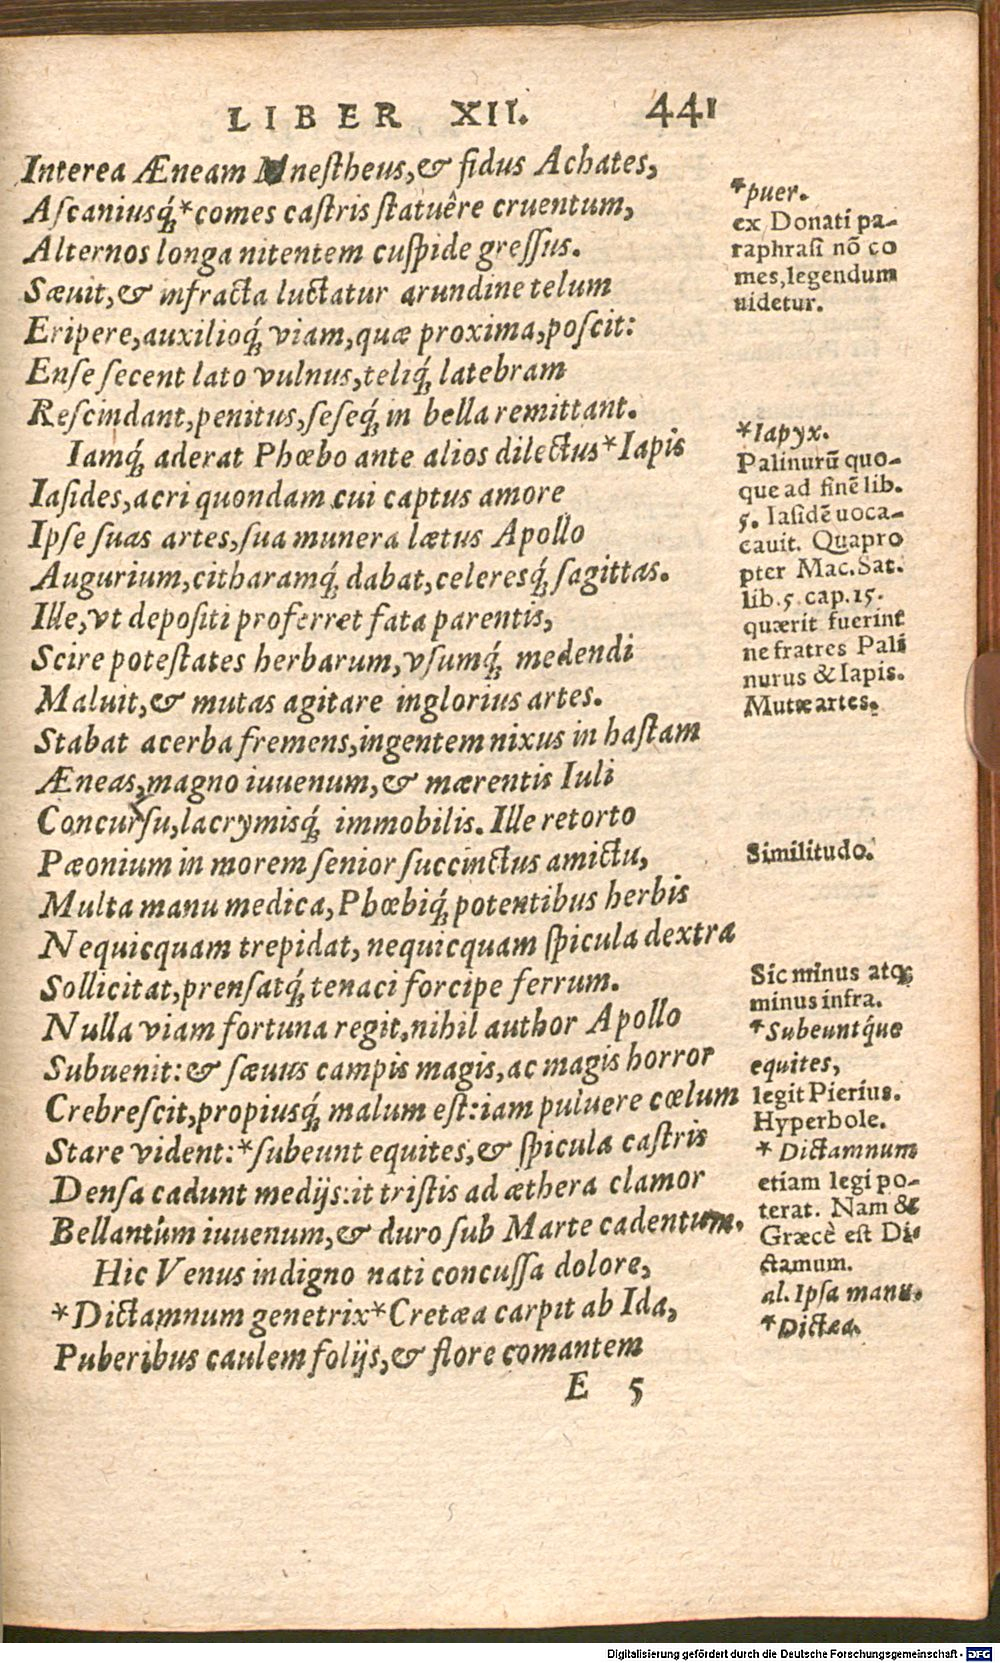 LIBER XII. 441
Interea Æneam Mnestheus,& fidus Achates,
Ascaniusq́;*comes castris statuêre cruentum,
Alternos longa nitentem cuspide gressus.
Sæuit,& infracta luctatur arundine telum
Eripere,auxilioq́; viam,quæ proxima,poscit:
Ense secent lato vulnus,teliq́; latebram
Rescindant,penitus,seseq́; in bella remittant.
Iamq́; aderat Phœbo ante alios dilectus*Iapis
Iasides,acri quondam cui captus amore
Ipse suas artes,sua munera lætus Apollo
Augurium,citharamq́; dabat,celeresq́; sagittas.
Ille,vt depositi proferret fata parentis,
Scire potestates herbarum,vsumq́; medendi
Maluit,& mutas agitare inglorius artes.
Stabat acerba fremens,ingentem nixus in hastam
Æneas,magno iuuenum,& mærentis Iuli
Concursu,lacrymisq́; immobilis. Ille retorto
Pæonium in morem senior succinctus amictu,
Multa manu medica,Phœbiq́; potentibus herbis
Nequicquam trepidat,nequicquam spicula dextra
Sollicitat,prensatq́; tenaci forcipe ferrum.
Nulla viam fortuna regit,nihil author Apollo
Subuenit:& sæuus campis magis,ac magis horror
Crebrescit,propiusq́; malum est:iam puluere cœlum
Stare vident:*subeunt equites,& spicula castris
Densa cadunt medijs:it tristis ad æthera clamor
Bellantûm iuuenum,& duro sub Marte cadentum.
Hic Venus indigno nati concussa dolore,
*Dictamnum genetrix*Cretæa carpit ab Ida,
Puberibus caulem folijs,& flore comantem
E 5
*puer.
ex Donati pa-
raphrasi nõ co
mes,legendum
uidetur.
*Iapyx.
Palinurũ quo-
que ad finẽ lib.
5. Iasidẽ uoca-
cauit. Quapro
pter Mac.Sat.
lib.5.cap.15.
quærit fuerint
ne fratres Pali
nurus & Iapis.
Mutæ artes.
Similitudo.
Sic minus atq;
minus infra.
*Subeuntq́ue
equites,
legit Pierius.
Hyperbole.
* Dictamnum
etiam legi po-
terat. Nam &
Græcè est Di-
ctamum.
al. Ipsa manu.
*Dictæa.
Digitalisierung gefördert durch die Deutsche Forschungsgemeinschaft - DFG